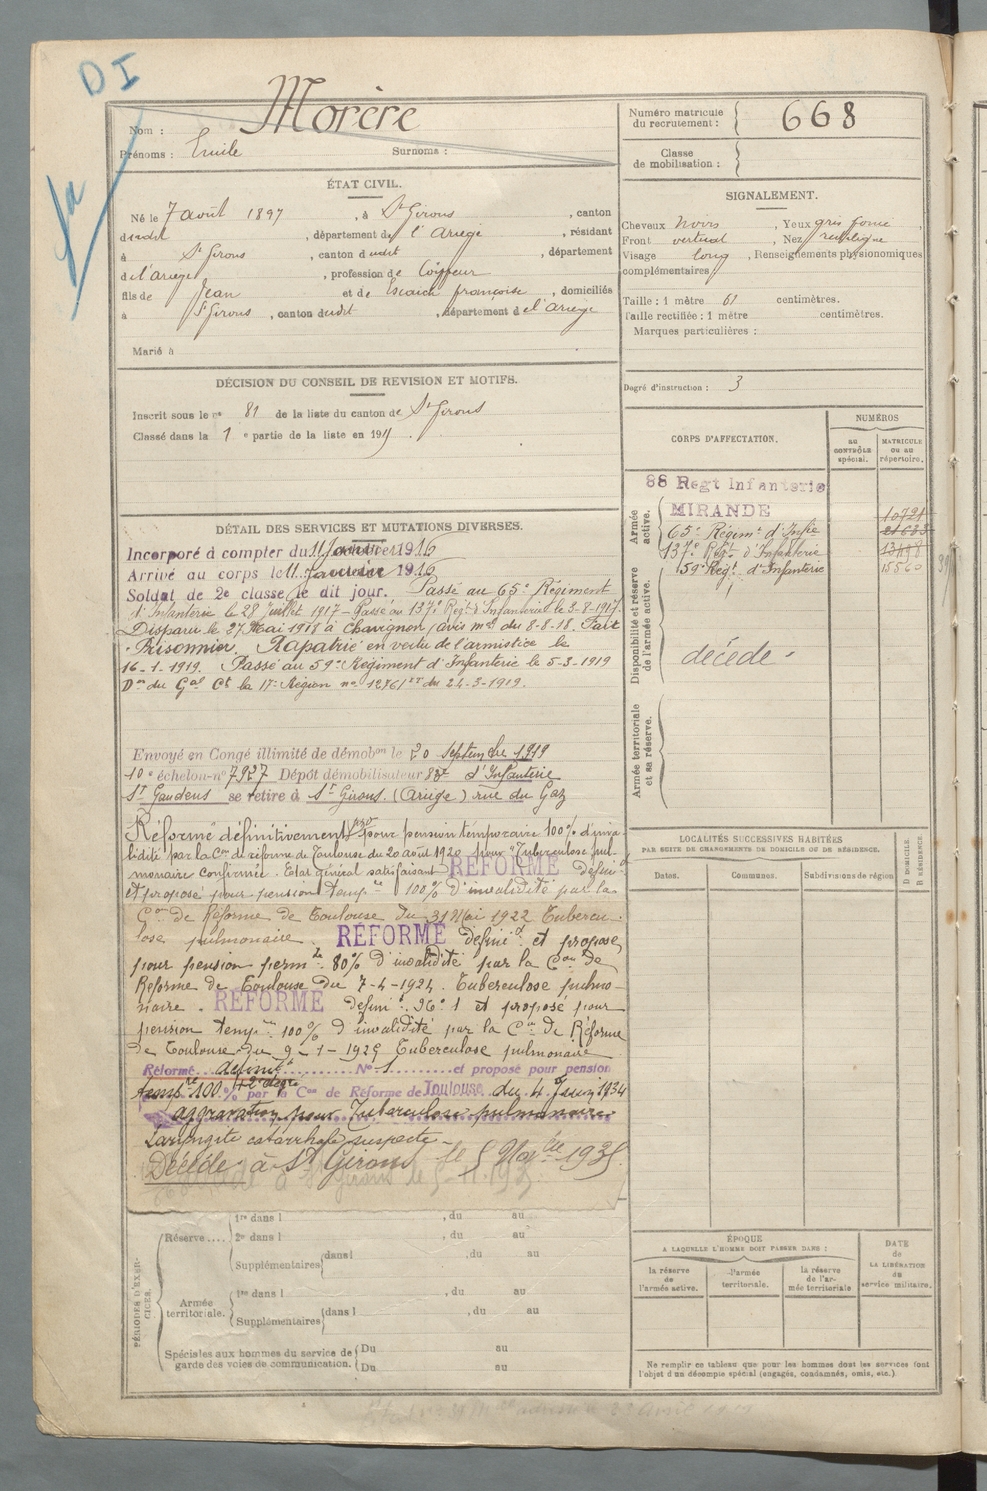 DI
Nom : Morère
Prénoms : Emile Surnoms :
Numéro matricule du recrutement : 668
Classe de mobilisation :
ÉTAT CIVIL.
Né le 7 août 1897, à St Girons, canton
dudit, département de l'Ariège, résidant
à St Girons, canton dudit, département
de l'Ariège, profession de Coiffeur
fils de Jean et de Escaich françoise, domiciliés
à St Girons, canton dudit, département de l'Ariège
Marié à
SIGNALEMENT.
Cheveux Noirs, Yeux gris foncé,
Front vertical, Nez rectiligne
Visage long, Renseignements physionomiques
complémentaires
Taille : 1 mètre 61 centimètres.
Taille rectifiée : 1 mètre centimètres.
Marques particulières :
Degré d'instruction : 3
DÉCISION DU CONSEIL DE REVISION ET MOTIFS.
Inscrit sous le n° 81 de la liste du canton de St Girons
Classé dans la 1 e partie de la liste en 191
DÉTAIL DES SERVICES ET MUTATIONS DIVERSES.
Incorporé à compter du 11 1916
Arrivé au corps le 11 1916
Soldat de 2e classe le dit jour. Passé au 65e Régiment
d'Infanterie le 28 Juillet 1917 - Passé au 137e Regt d'Infanterie le 3-8-1917.
Disparu le 27 Mai 1918 à Chavignon (avis md du 8-8-18. Fait
Prisonnier. Rapatrié en vertu de l'armistice le
16-1-1919. Passé au 59e Régiment d'Infanterie le 5-3-1919
Don du Gal Ct la 17e Région no du 24-3-1919.
Envoyé en Congé illimité de démobon le 20 septembre 1919
10e échelon - no 7927 Dépôt démobilisateur d'Infanterie
St Gaudens se retire à St Girons. (Ariège) rue du Gaz
Réformé définitivement pour pension temporaire 100% d'inva
lidité par la Con de réforme de Toulouse du 20 août 1920 pour "Tuberculose pul-
monaire confirmée. Etat général satisfaisant RÉFORMÉ défini d
et proposé pour pension tempre 100% d'invalidité par la
Con de Réforme de Toulouse du 31 Mai 1922 Tubercu-
lose pulmonaire. RÉFORMÉ définid et proposé
pour pension permte 80% d'invalidité par la Con de
Réforme de Toulouse du 7-4-1924. Tuberculose pulmo-
naire. RÉFORMÉ défini 1 et proposé pour
pension tempre 100% d'invalidité par la Con de Réforme
de Toulouse du 9-1-1925 Tuberculose pulmonaire
Réformé N° 1 et proposé pour pension
tempre 100% + 2e degré par la Con de Réforme de Toulouse du 4 1934
aggravation pour Tuberculose pulmonaire
Laryngite catarrhale suspecte -
Décédé à St Girons le 5 Nov 1935.
CORPS D'AFFECTATION.
NUMÉROS
au CONTRÔLE spécial.
MATRICULE ou au répertoire.
Armée active.
88 Regt Infanterie
MIRANDE 10721
65e Régimt d'Infie
137e Régt d'Infanterie
59e Régt d'Infanterie 15560
Disponibilité et réserve de l'armée active.
décédé -
Armée territoriale et sa réserve.
LOCALITÉS SUCCESSIVES HABITÉES
PAR SUITE DE CHANGEMENTS DE DOMICILE OU DE RÉSIDENCE.
Dates. Communes. Subdivisions de région
D DOMICILE. R RÉSIDENCE.
PÉRIODES D'EXERCICES.
Réserve.... 1re dans l , du au
2e dans l , du au
Supplémentaires dans l , du au
Armée territoriale. 1re dans l , du au
Supplémentaires dans l , du au
Spéciales aux hommes du service de garde des voies de communication. Du au
Du au
ÉPOQUE
A LAQUELLE L'HOMME DOIT PASSER DANS :
la réserve de l'armée active.
l'armée territoriale.
la réserve de l'armée territoriale
DATE de LA LIBÉRATION du service militaire.
Ne remplir ce tableau que pour les hommes dont les services font
l'objet d'un décompte spécial (engagés, condamnés, omis, etc.).